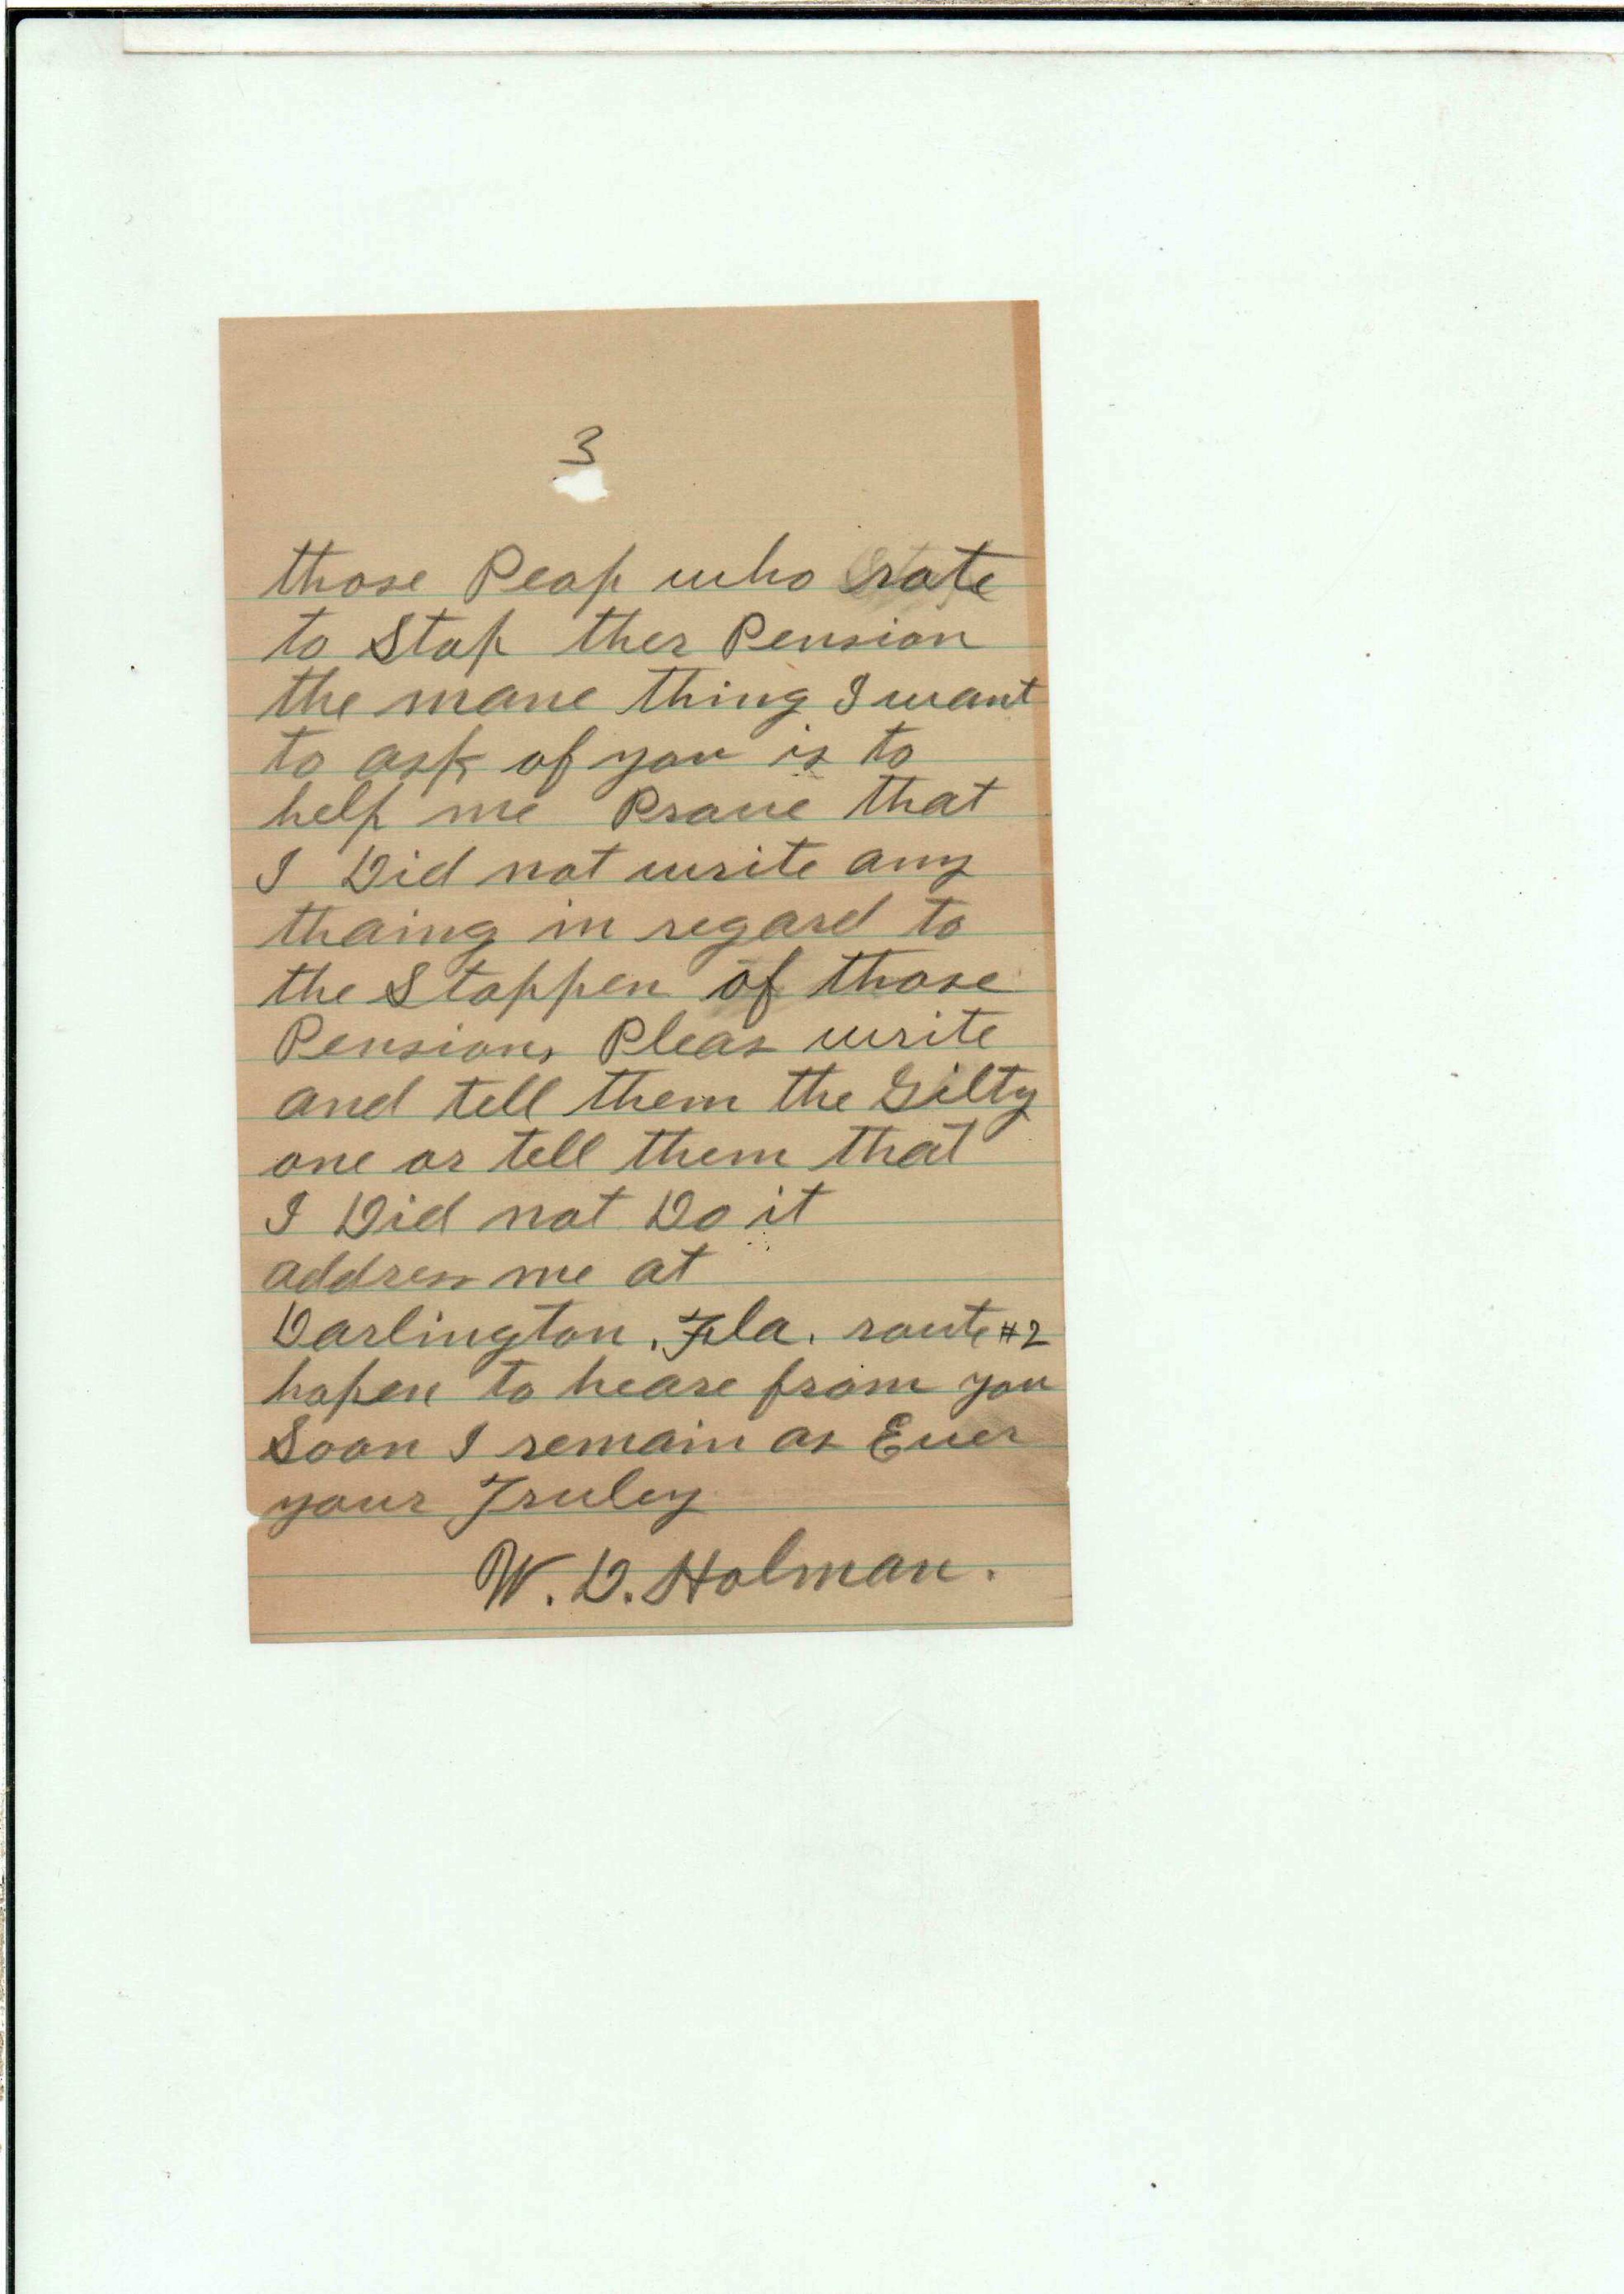 3
those Peap who rote
to Stop ther Pension
the mane thing I want
to ask of you is to
help me Prove that
I Did not write any
thaing in regard to
the Stoppen of those
Pension, Pleas write
and tell them the Gilty
one or tell them that
I Did not Do it
address me at
Darlington, Fla. route #2
hopen to heare from you
Soon I remain as Ever
your Truley
W. D. Holman.